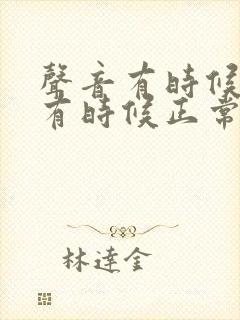 聲音有時候
有時候正常
林達金